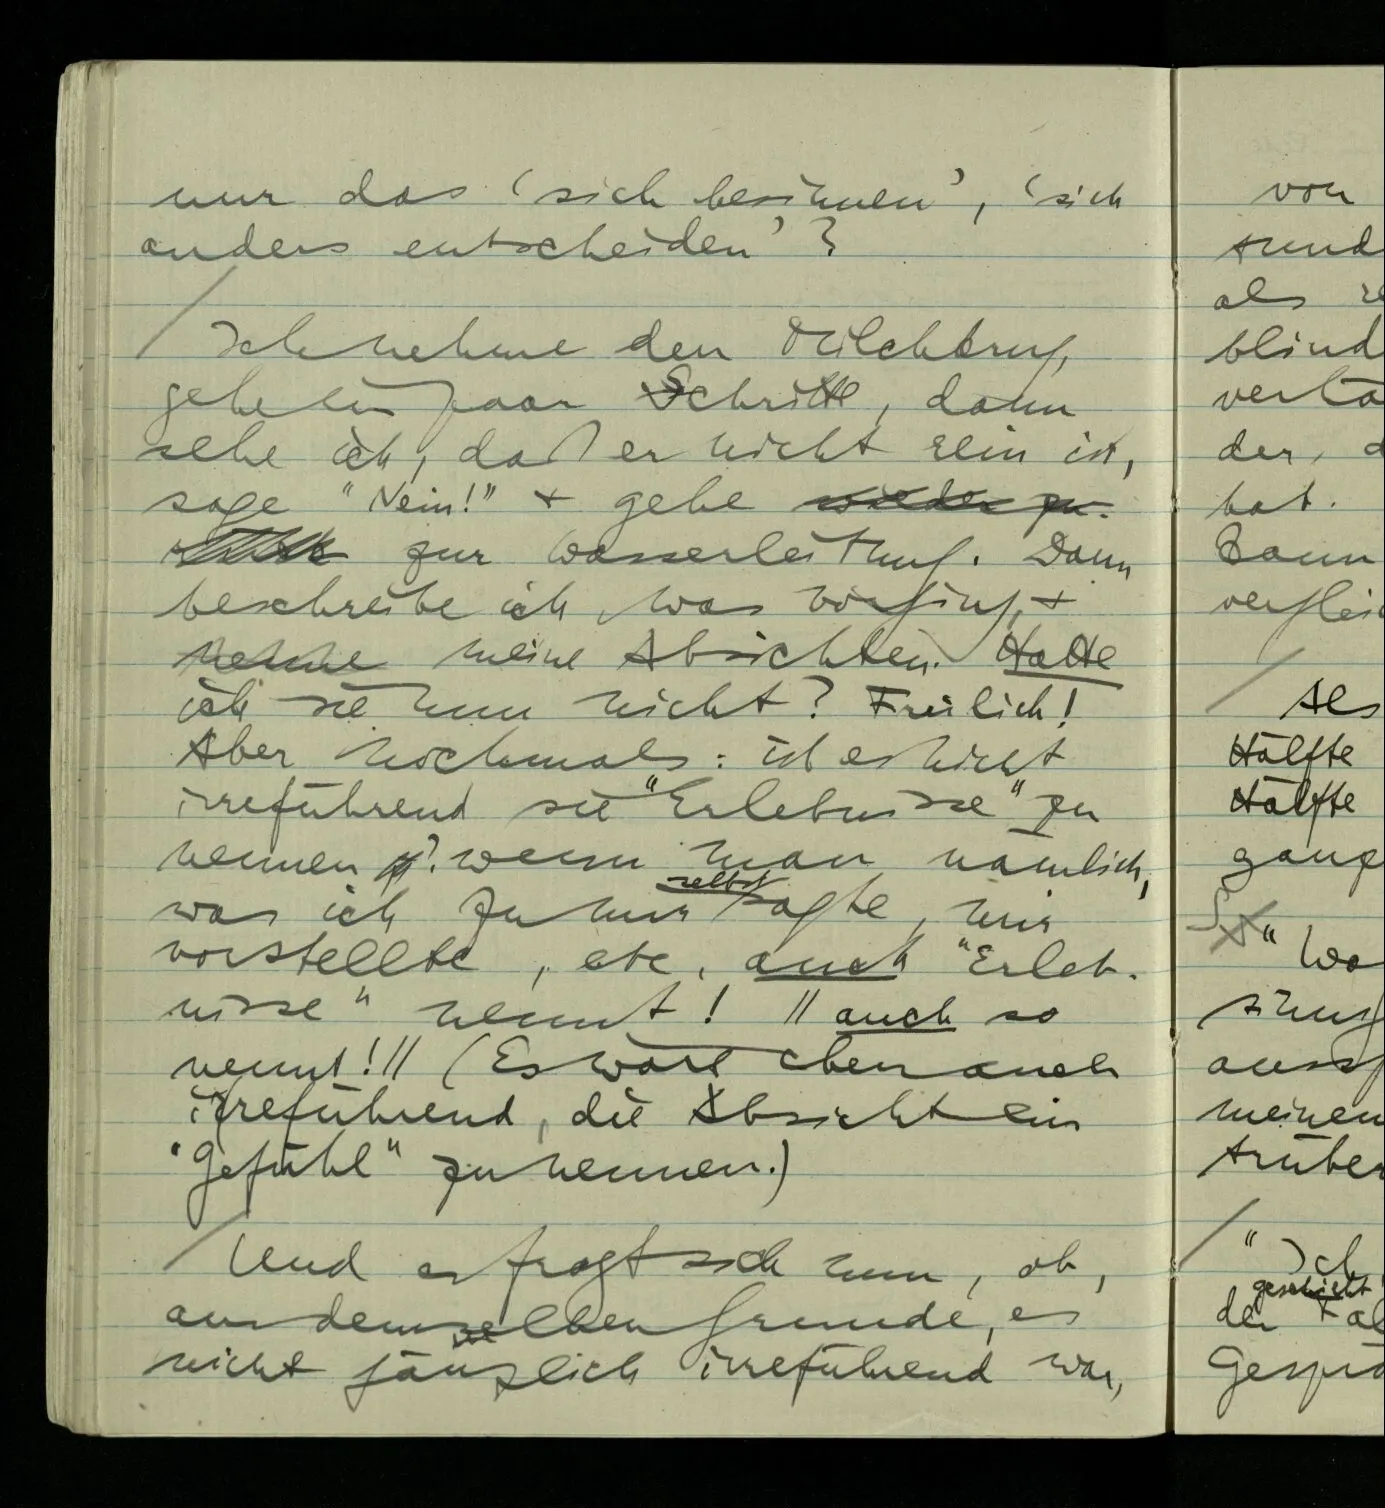 nur das ‘sich besinnen’, ‘sich
anders entscheiden’?
/ Ich nehme den Milchkrug,
gehe ein paar Schritte, dann
sehe ich, daß er nicht rein ist,
sage "Nein!" + gehe wieder zu-
zur Wasserleitung. Dann
beschreibe ich, was vorging, +
nenne meine Absichten. Hatte
ich sie nun nicht? Freilich!
Aber nochmals: ist es nicht
irreführend sie "Erlebnisse" zu
nennen? wenn man nämlich,
was ich zu mir selbst sagte, mir
vorstellte, etc, auch "Erleb-
nisse" nennt! || auch so
nennt!|| (Es wäre eben auch
irreführend, die Absicht ein
"Gefühl" zu nennen.)
/ Und es fragt sich nun, ob,
aus demselben Grunde, es
nicht gänzlich irreführend war,
von
als
blind
der,
hat.
/ Als
Hälfte
Hälfte
meinen
/ "Ich
geschieht